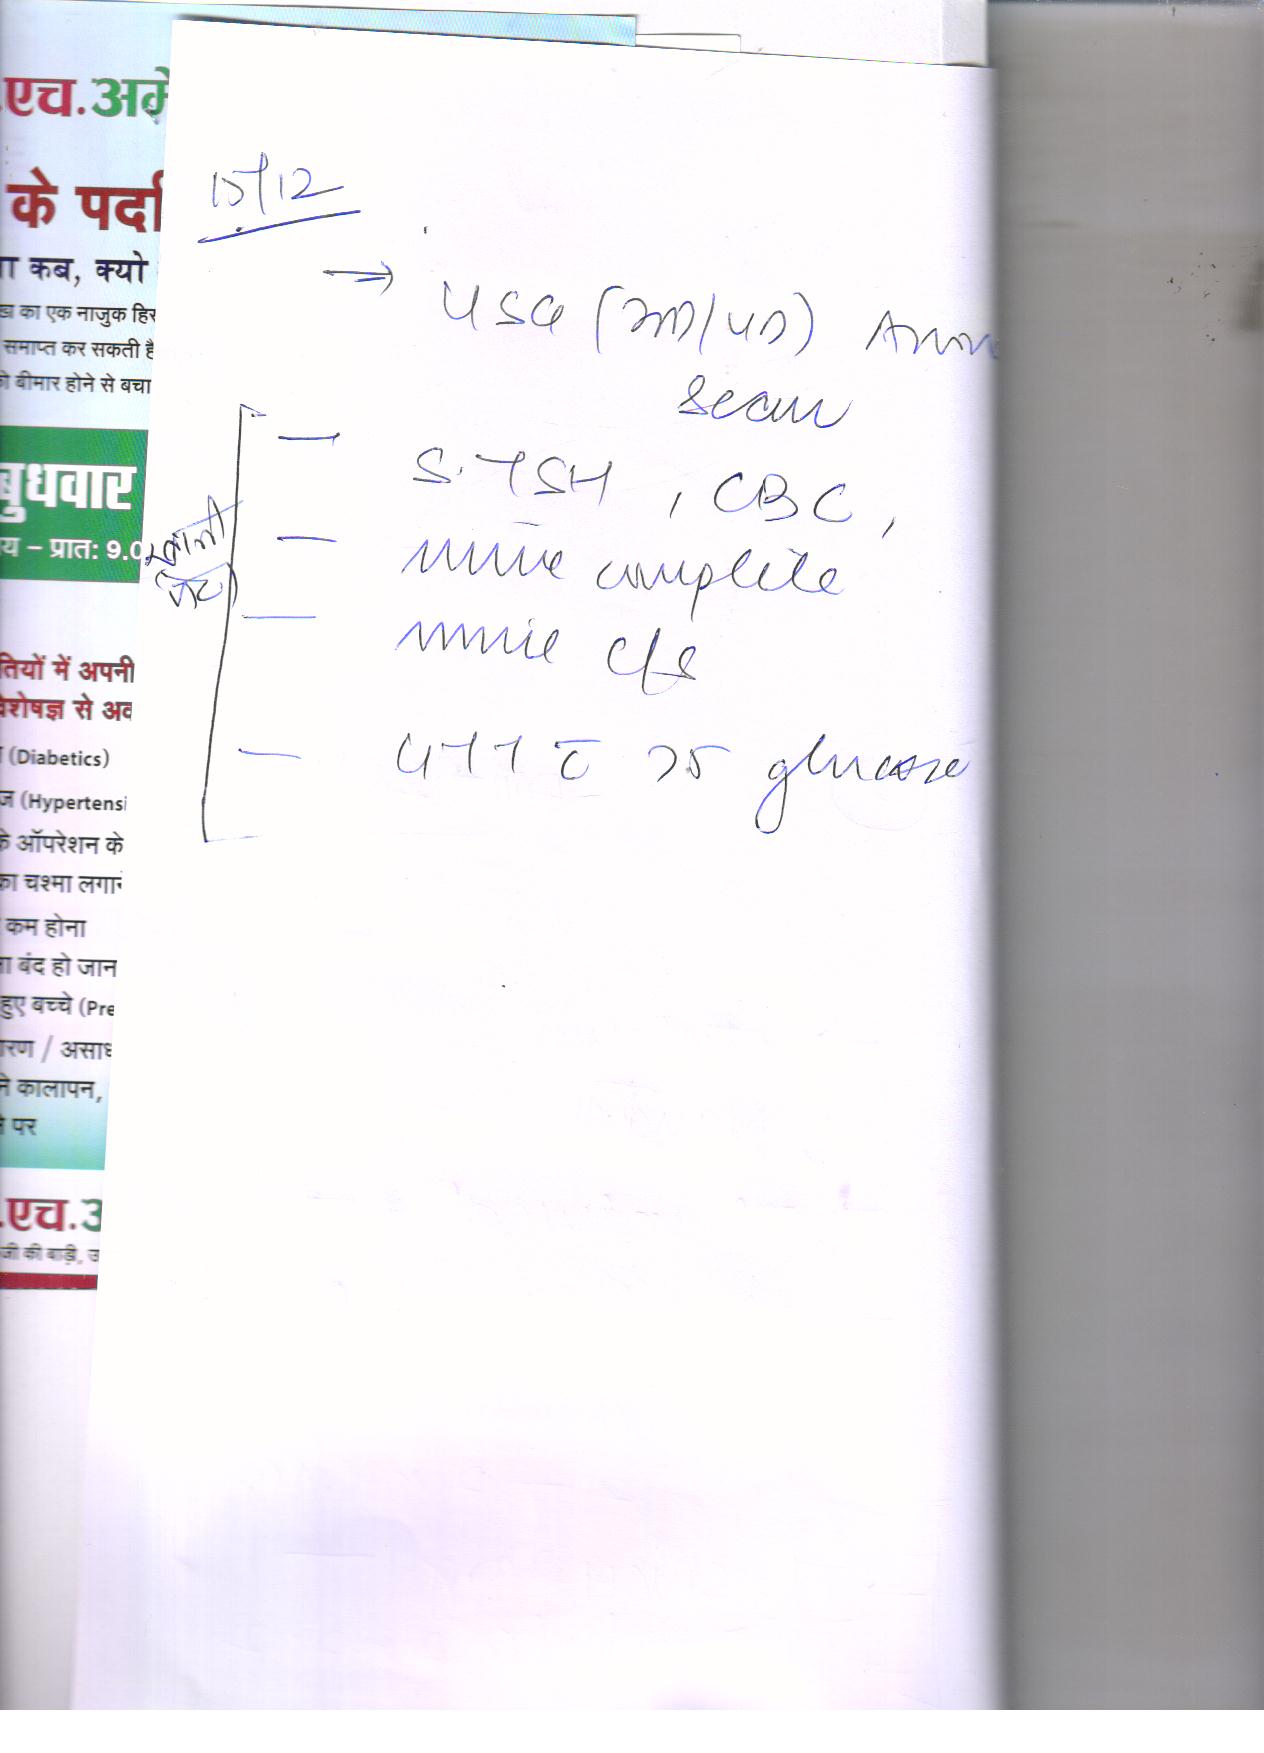 .एच.अमे
के पर्दा
ा कब, क्यो
का एक नाजुक हिस
समाप्त कर सकती है
ो बीमार होने से बचा
बुधवार
य – प्रात: 9.0
तियों में अपनी
विशेषज्ञ से अव
(Diabetics)
ज (Hypertensi
के ऑपरेशन के
का चश्मा लगान
कम होना
ना बंद हो जान
हुए बच्चे (Pre
ारण / असाध
ने कालापन,
े पर
.एच.अ
जी की बाड़ी, उ
15/12
→ USG (3D/4D) Anom
Scan
खाली पेट
— S.TSH , CBC ,
— urine complete
— urine c/s
— GTT c̄ 75 glucose